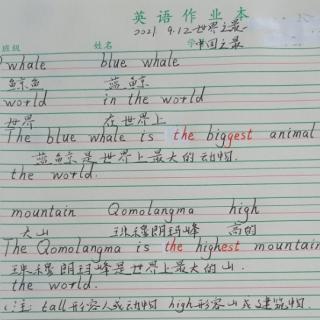 英语作业本
2021 9.12 世界之最
班级 姓名 中国之最
whale blue whale
鲸鱼 蓝鲸
world in the world
世界 在世界上
The blue whale is the biggest animal
蓝鲸是世界上最大的动物.
the world.
mountain Qomolangma high
大山 珠穆朗玛峰 高的
The Qomolangma is the highest mountain
珠穆朗玛峰是世界上最大的山.
the world.
注: tall形容人或动物 high形容山或建筑物.